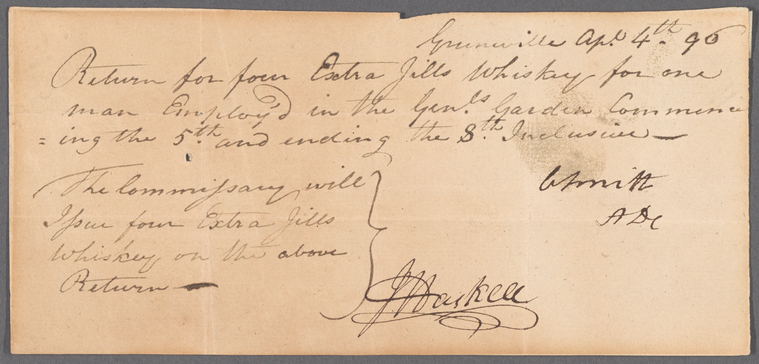 Greenville Apl. 4th. 96
Return for four Extra Jills Whiskey for one
man Employ'd in the Genls. Garden Commenc
=ing the 5th. and ending the 8th. Inclusive —
The Commissary will
Issue four Extra Jills
Whiskey on the above
Return —
ADC
J Haskell